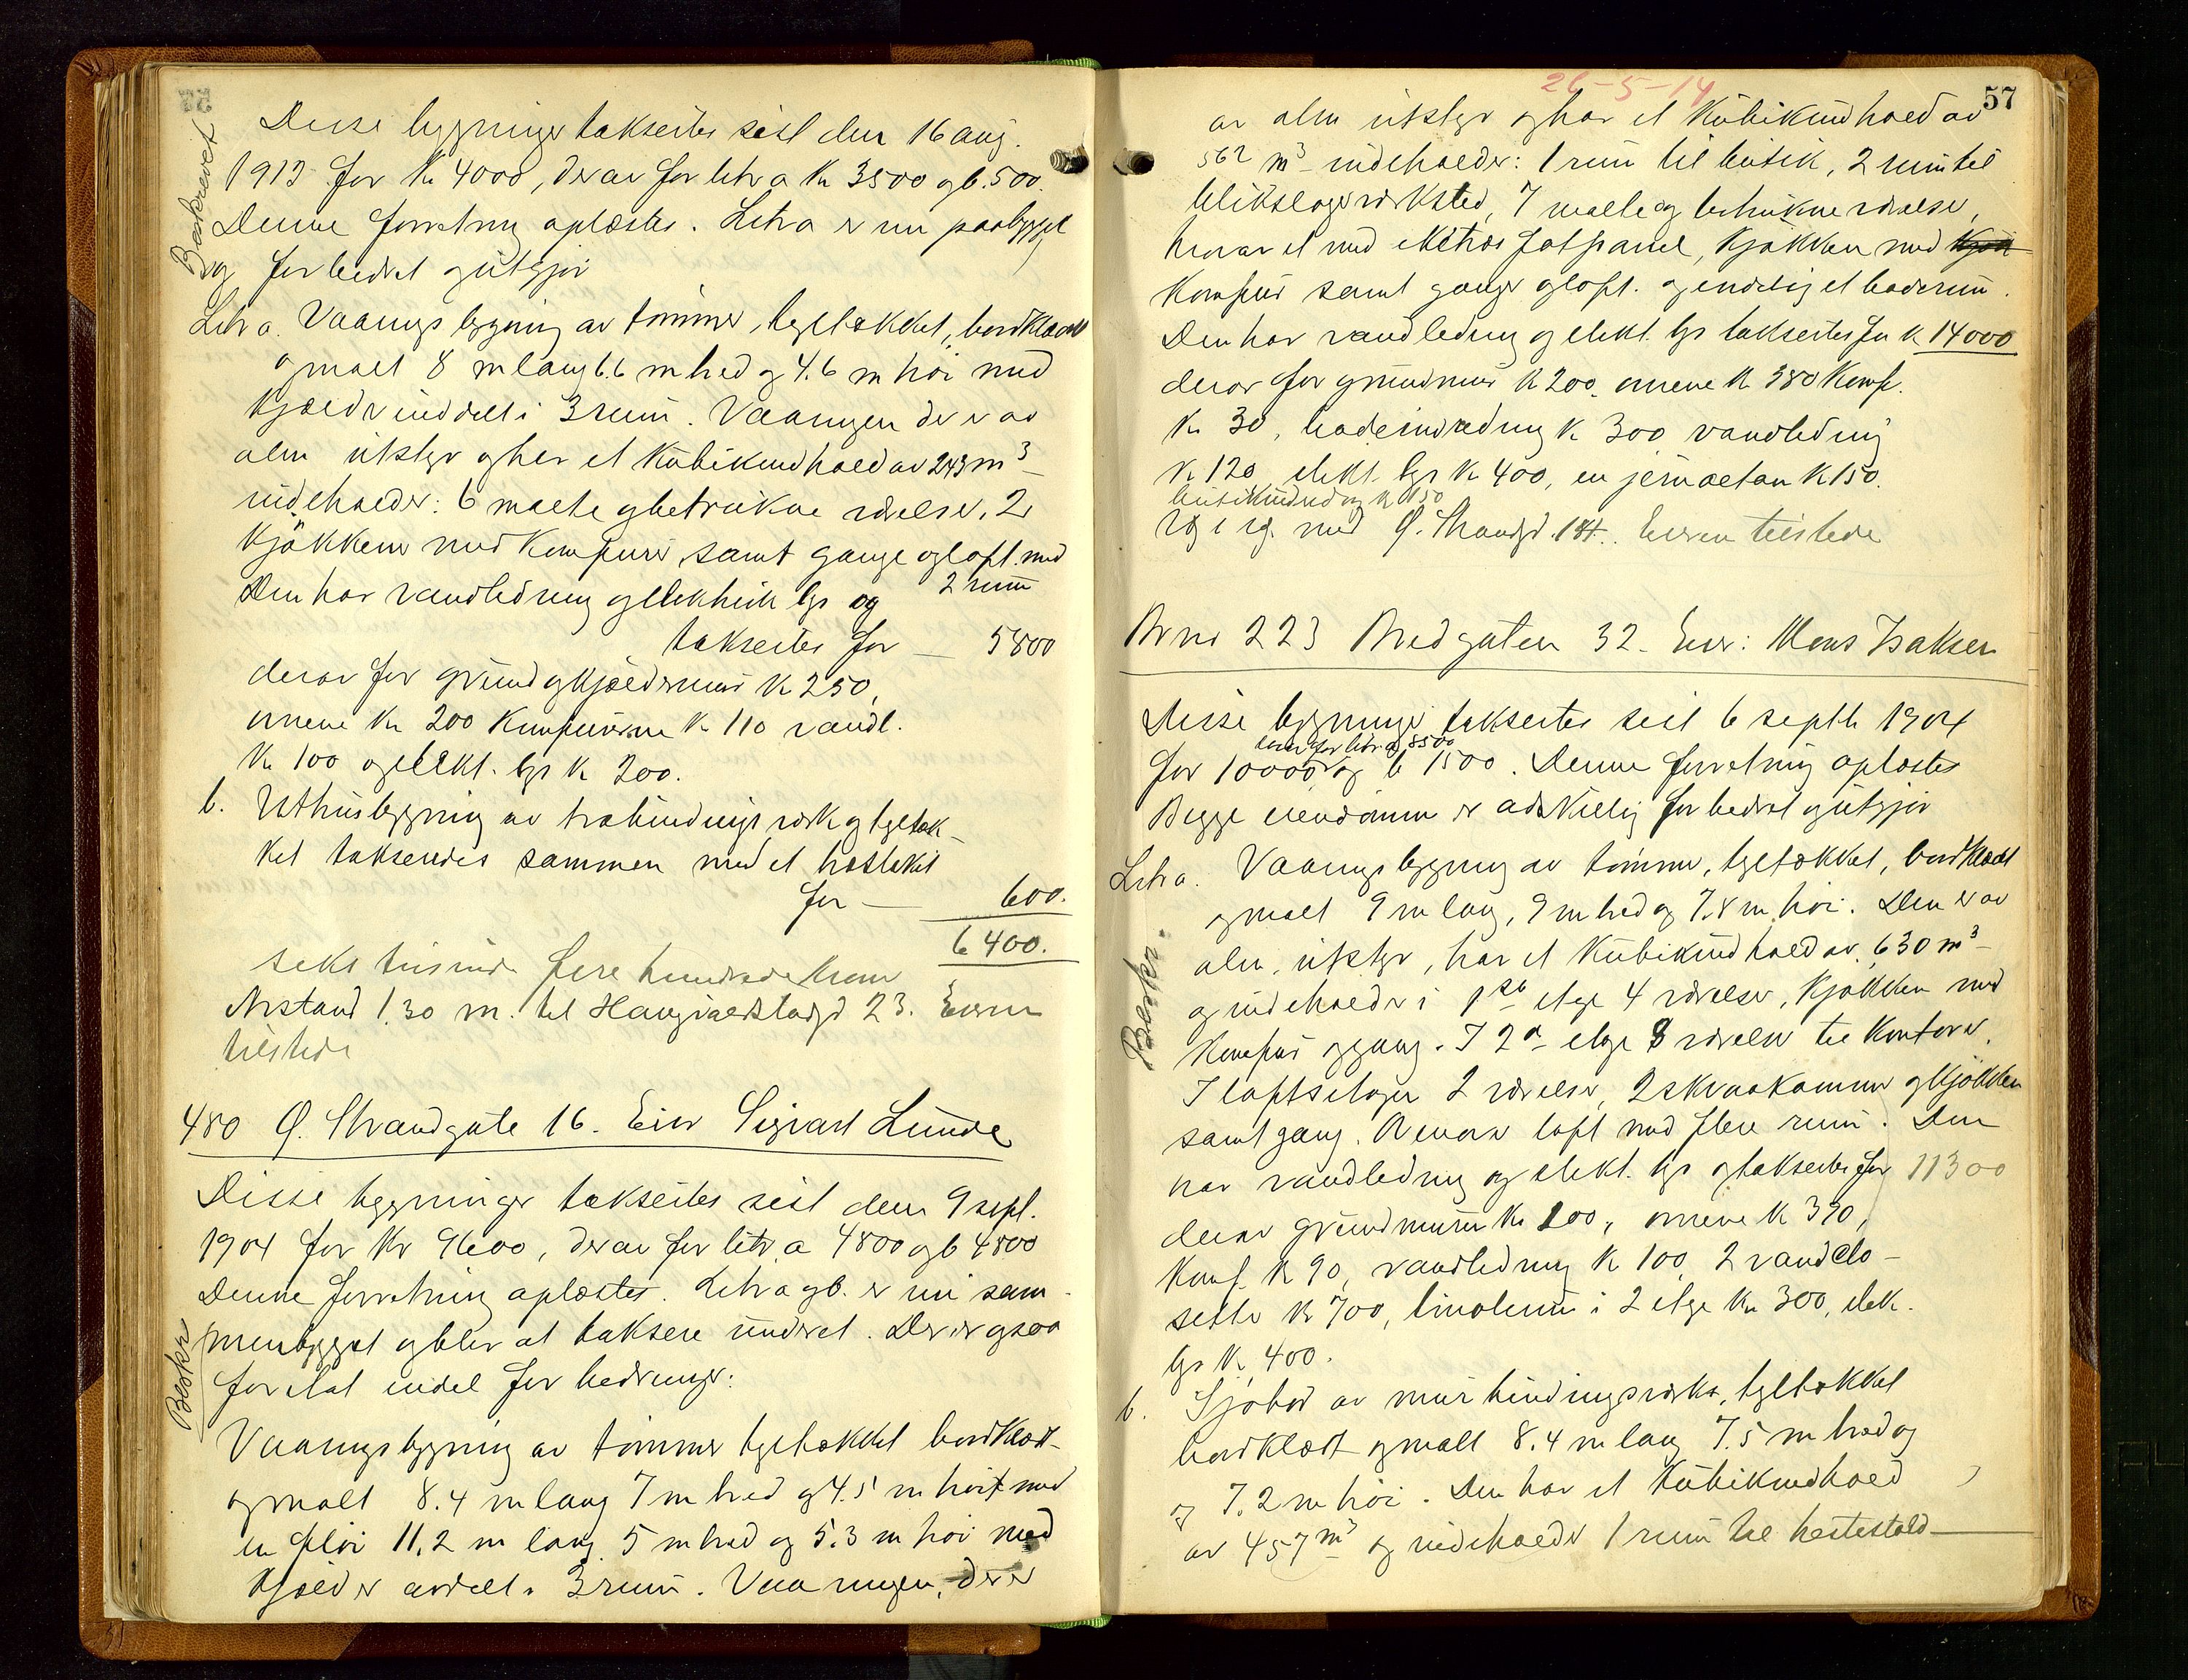 Beskrevet
Disse bygninger takseites sist den 16 aug.
1912 for Kr 4000, derav for litr a Kr 3500 og b. 500.
Denne forretning oplæstes. Litra er nu paabygget
og forbedret og utgjør
Litr a. Vaaningsbygning av tømmer, tegltækket, bordklædt
og malt 8 m lang 6.6 m bred og 4.6 m høi med
kjælder inddelt i 3 rum. Vaaningen der er av
alm utstyr og har et Kubikindhold av 243 m³
indeholder: 6 malte og betrukne værelser, 2
Kjøkkener med Komfurer samt gange og loft med
2 rum
Den har vandledning og elektrisk lys og
takseites for — 5800
derav for grund og kjældermur Kr 250,
ovnene Kr 200 Komfurerne Kr 110 vandl.
Kr 100 og elekt. lys Kr 200.
b. Uthusbygning av træbindingsverk og tegltæk-
ket takseredes sammen med et
for — 600.
6400.
seks tusinde fire hundrede kroner
Avstand 1.30 m. til Haugvaldstadgd 23. Eieren
tilstede
480 Ø. Strandgate 16. Eier Sigvart Lunde
Beskr
Disse bygninger takseites sist den 9 sept.
1904 for Kr 9600, derav for litr. a 4800 og b 4800
Denne forretning oplæstes. Litra a og b. er nu sam-
menbygget og blir at taksere under et. Der er ogsaa
foretat endel forbedringer:
Vaaningsbygning av tømmer tegltækket bordklædt
og malt 8.4 m lang 7 m bred og 4.5 m høit med
en fløi 11.2 m lang 5 m bred og 5.3 m høi med
Kjælder avdelt i 3 rum. Vaaningen, der er
26-5-14
57
av alm utstyr og har et Kubikindhold av
562 m³ indeholder: 1 rum til butik, 2 rum til
blikslagerverksted, 7 malte og betrukne værelser,
hvorav et med ekstra fotpanel, Kjøkken med Kjøk
Komfur samt gange og loft. og endelig et baderum.
Den har vandledning og elekt. lys takseites for Kr 14000
derav for grundmur Kr 200. ovnene Kr 380 Komf.
Kr 30, badeindredning Kr 300 vandledning
Kr 120, elekt. lys Kr 400, en jernaltan Kr 150.
butikindredng Kr 150
V. i V. med Ø. Strandgd. 14. Eieren tilstede
Br no 223 Bredgaten 32. Eier: Mons Isaksen
Beskr.
Disse bygninger takseites sist 6 septb 1904
derav for litr a 8500
for 10000 og b 1500. Denne forretning oplæstes
Begge eiendomme er adskillig forbedret og utgjør
Litr a. Vaaningsbygning av tømmer, tegltækket, bordklædt
og malt 9 m lang, 9 m bred og 7.8 m høi. Den er av
alm. utstyr, har et Kubikindhold av 630 m³
og indeholder i 1ste etage 4 værelser, Kjøkken med
Komfur og gang. I 2den etage 8 værelser til Kontorer.
I loftsetagen 2 værelser, 2 skraakammer og Kjøkken
samt gang. Ovenover loft med flere rum. Den
har vandledning og elekt. lys og takseites for 11300
derav grundmuren Kr 200, ovnene Kr 390,
Komf. Kr 90, vandledning Kr 100, 2 vandclo-
setter Kr 700, linoleum i 2 etage Kr 300, elek.
lys Kr 400.
b. Sjøbod av mur bindingsverk, tegltækket
bordklædt og malt 8.4 m lang 7.5 m bred og
og 7.2 m høi. Den har et Kubikindhold
av 457 m³ og indeholder 1 rum til hestestald